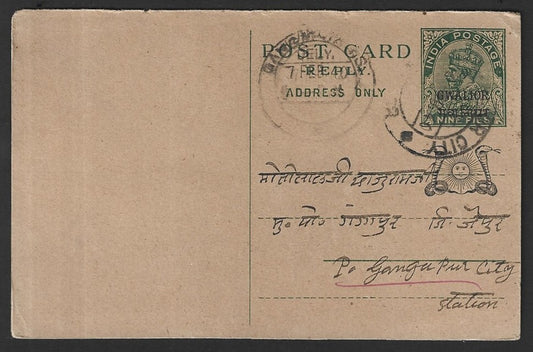 POST CARD
REPLY.
ADDRESS ONLY
INDIA POSTAGE
GWALIOR
NINE PIES
DELY.
7 FEB 40
CITY
मोतीलालजी
मु० पो० गंगापुर जि० जैपुर
P. Gangapur City
Station